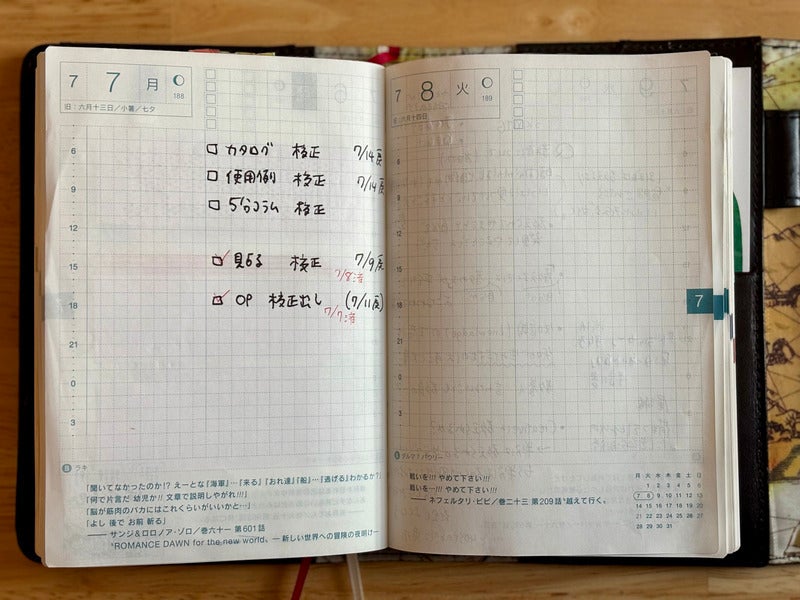 7 7 月
188
旧:六月十三日/小暑/七夕
カタログ 校正 7/14戻
使用例 校正 7/14戻
5分コラム 校正
見る 校正 7/9戻
7/8済
OP 校正出し (7/11戻)
7/7済
6
9
12
15
18
21
0
3
ラキ
「聞いてなかったのか!? えーとな『海軍』…『来る』『おれ達』『船』…『逃げる』わかるか?」
「何で片言だ 幼児か!! 文章で説明しやがれ!!!」
「脳が筋肉のバカにはこれくらいがいいかと…」
「よし 後で お前 斬る」
――サンジ&ロロノア・ゾロ/巻六十一 第601話
"ROMANCE DAWN for the new world、―新しい世界への冒険の夜明け―
7 8 火
189
旧:六月十四日
7
戦いを!!! やめて下さい!!!
戦いを…!!! やめて下さい!!!
――ネフェルタリ・ビビ/巻二十三 第209話"越えて行く。
月 火 水 木 金 土 日
1 2 3 4 5 6
7 8 9 10 11 12 13
14 15 16 17 18 19 20
21 22 23 24 25 26 27
28 29 30 31